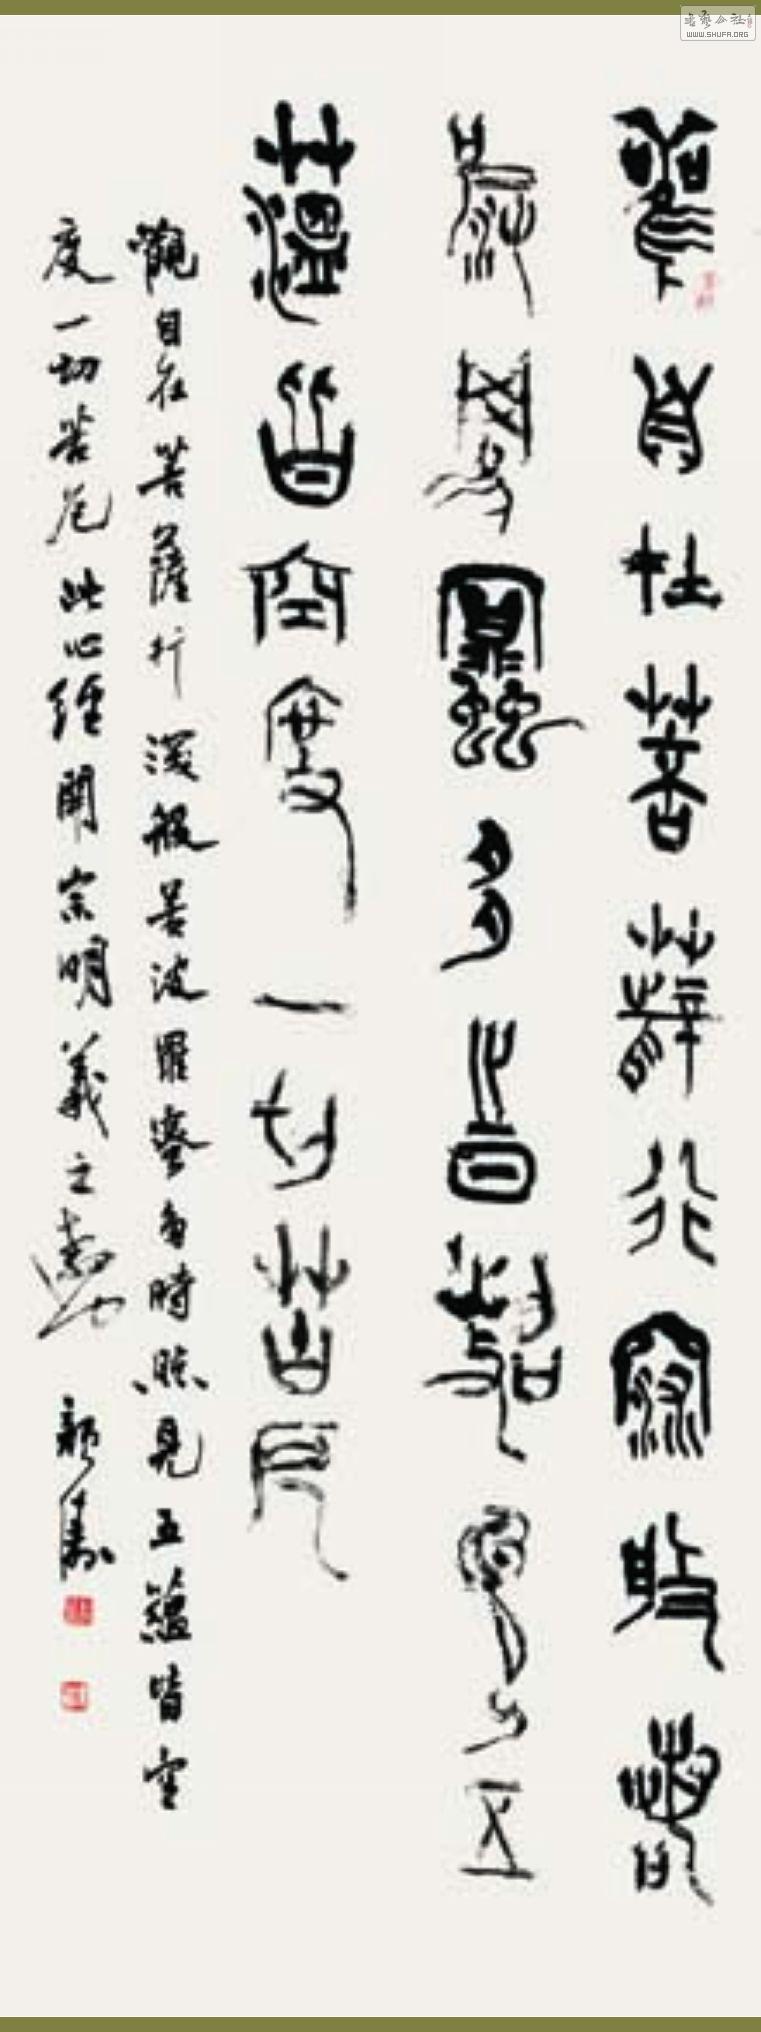 雚自在菩薩行深般若
波羅蜜多時照見五
蘊皆空度一切苦厄
觀自在菩薩行深般若波羅蜜多時照見五蘊皆空
度一切苦厄此心經開宗明義之
WWW.SHUFA.ORG